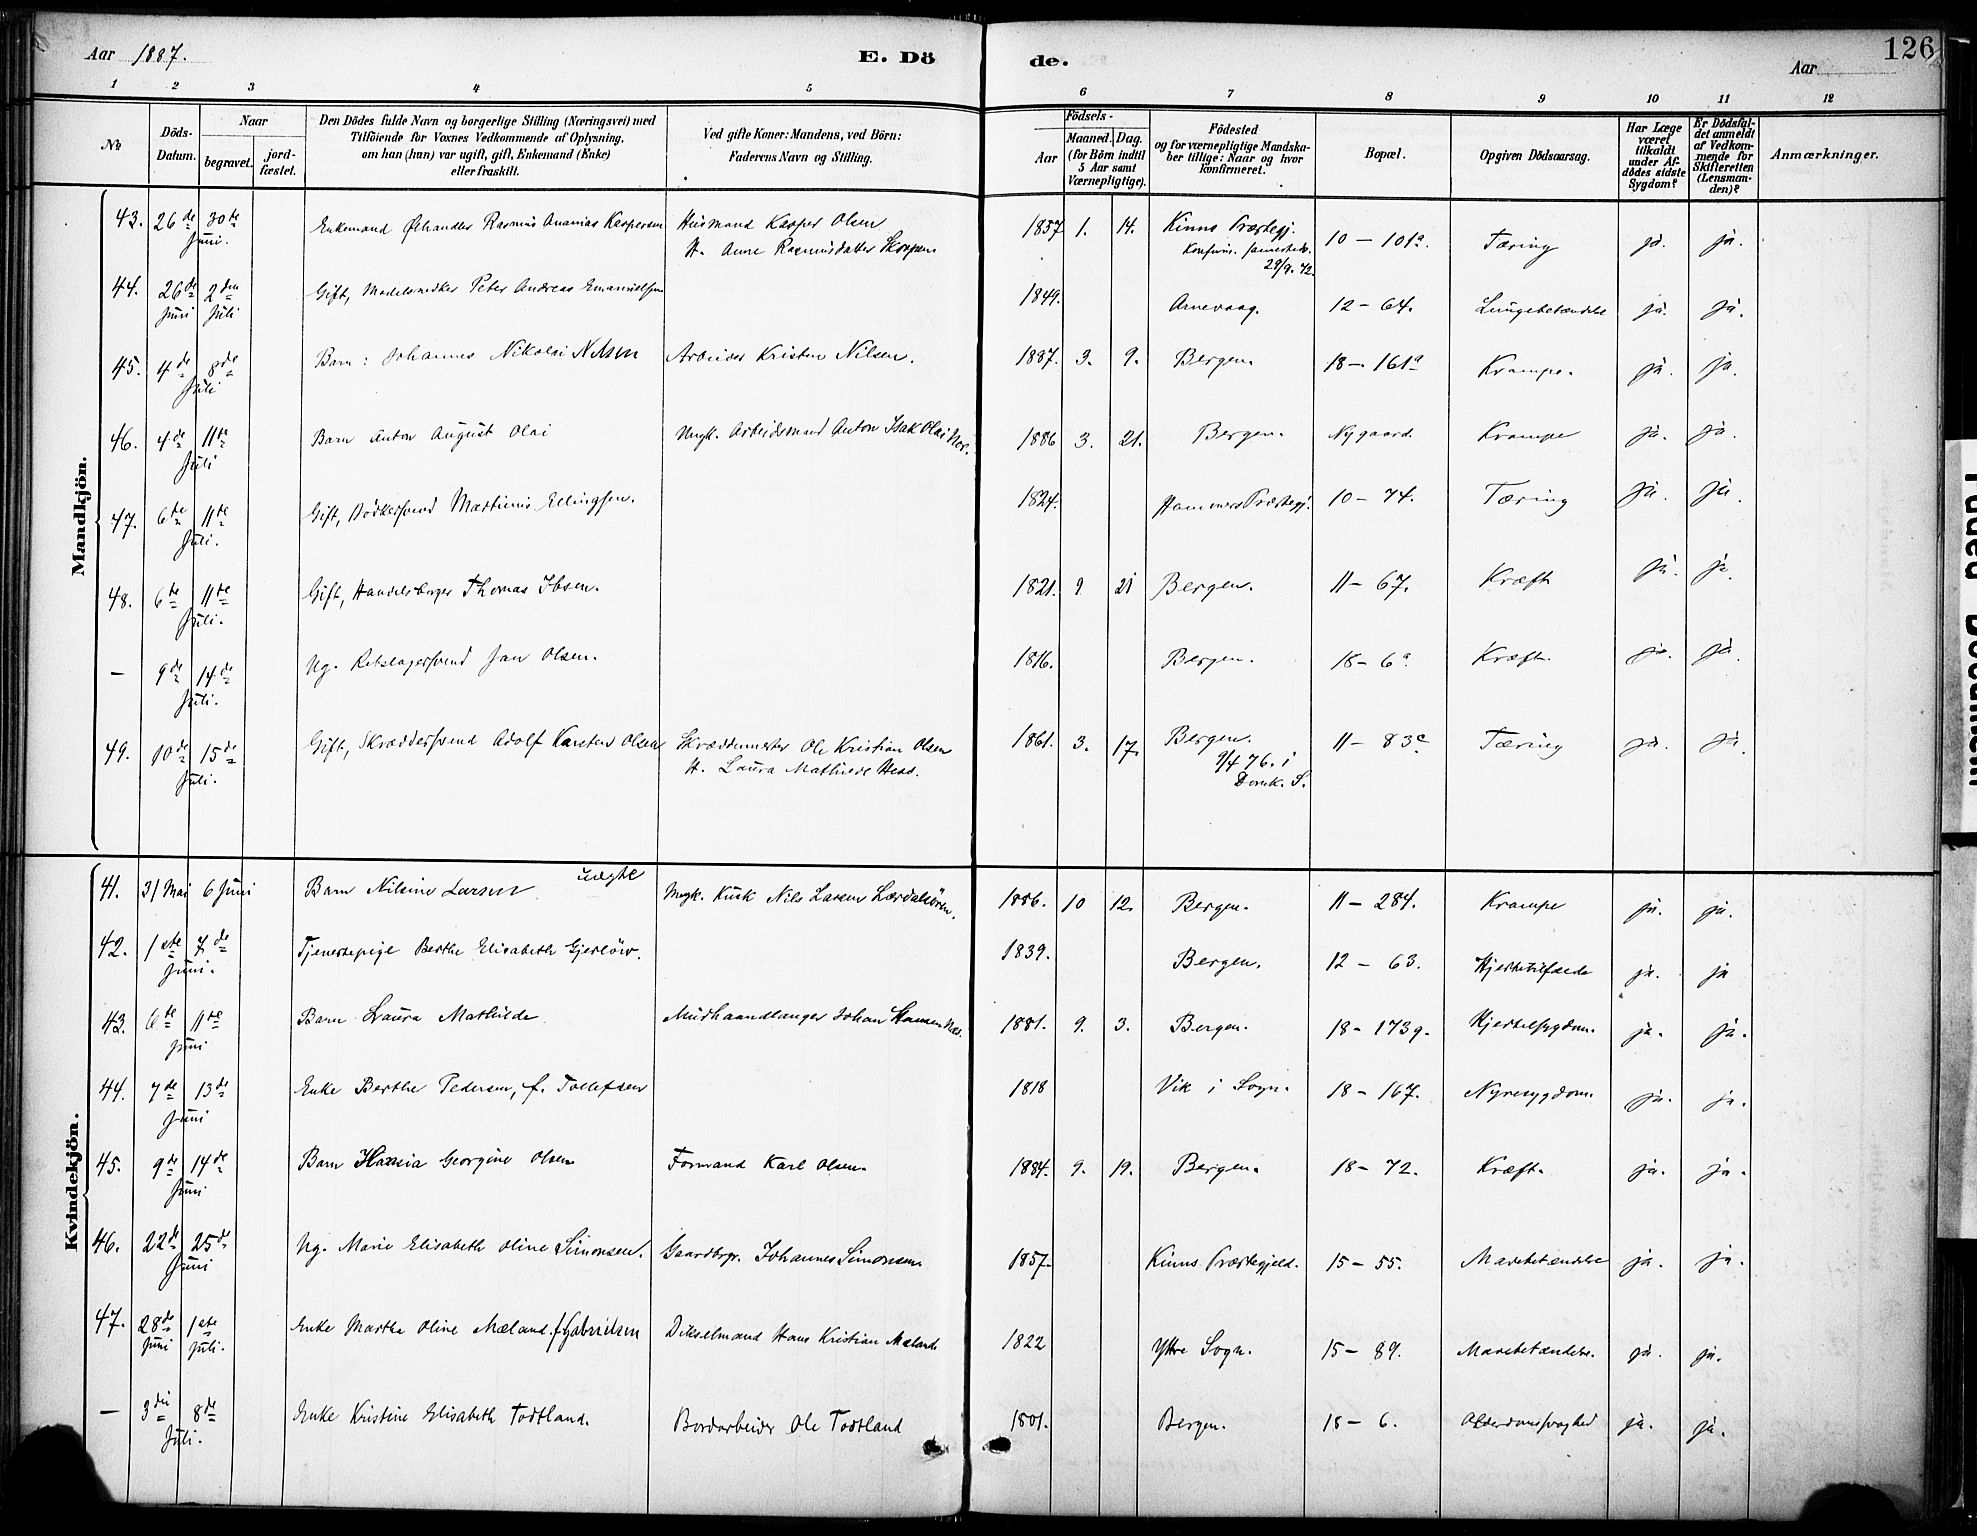 Aar 1887.
E. Döde.
Aar
126
1 2 3 4 5 6 7 8 9 10 11 12
No
Döds-Datum.
Naar
begravet.
jord-fæstet.
Den Dödes fulde Navn og borgerlige Stilling (Næringsvei) med
Tilföiende for Voxnes Vedkommende af Oplysning,
om han (hun) var ugift, gift, Enkemand (Enke)
eller fraskilt.
Ved gifte Koner: Mandens, ved Börn:
Faderens Navn og Stilling.
Födsels-
Aar
Maaned.
Dag.
(for Börn indtil
5 Aar samt
Værnepligtige).
Födested
og for værnepligtige Mandska-
ber tillige: Naar og hvor
konfirmeret.
Bopæl.
Opgiven Dödsaarsag.
Har Læge
været
tilkaldt
under Af-
dödes sidste
Sygdom?
Er Dödsfal-
det anmeldt
af Vedkom-
mende for
Skifteretten
(Lensman-
den)?
Anmærkninger.
Mandkjön.
43. 26de 30te Juni. Enkemand Ølhandler Rasmus Ananias Kaspersen Husmand Kasper Olsen 1857 1. 14. Kinns Præstegj. 10 – 101a. Tæring ja. ja.
H. Anne Rasmusdatter Konfirm. sammesteds.
28/9. 72.
44. 26de Juni 2den Juli Gift, Peter Andreas Emanuelsen 1849. Arnevaag. 12 – 64. Lungebetændelse ja. ja.
45. 4de 8de Juli Barn: Johannes Nikolai Nilsen Arbeider Kristen Nilsen. 1887. 3. 9. Bergen. 18 – 161a Krampe. ja. ja.
46. 4de 11te Juli Barn Anton August Olai Ungk. Arbeidsmand Anton Isak Olai 1886 3. 21. Bergen. Nygaard. Krampe ja. ja.
47. 6te 11te Juli. Gift, Bödkersvend Martinus Ellingsen. 1824. Hammers Præstegj. 10 – 74. Tæring ja. ja.
48. 6te 11te Juli. Gift, Handelsborger Thomas Ibsen. 1821. 9 21 Bergen. 11 – 67. Kræft ja. ja.
– 9de 14de Juli. Ug. Rebslagersvend Jan Olsen. 1816. Bergen. 18 – 6a. Kræft. ja. ja.
49. 10de 15de Juli. Gift, Skræddersvend Adolf Karsten Olsen Skræddermester Ole Kristian Olsen 1861. 3. 17. Bergen. 11 – 83c Tæring ja. ja.
H. Laura Mathilde 9/4 76. i
Domk. S.
Kvindekjön.
41. 31 Mai 6 Juni Barn Nilsine Larsen uægte Ungk. Kusk Nils Larsen Lærdalsören. 1886. 10 12. Bergen. 11 – 284. Krampe ja. ja.
42. 1ste 7de Juni. Tjenestepige Berthe Elisabeth Gjerlöw. 1839. Bergen. 12 – 63. Hjertetilfælde ja. ja
43. 6te 11te Juni Barn Laura Mathilde Murhaandlanger Johan Hansen 1881. 9. 3. Bergen. 18 – 173g. Hjertesygdom. ja. ja.
44. 7de 13de Juni Enke Berthe Pedersen, f. Tollefsen 1818 Vik i Sogn. 18 – 167. Nyresygdom. ja. ja.
45. 9de 14de Juni Barn Georgine Olsen Formand Karl Olsen. 1884. 9. 19. Bergen. 18 – 72. Kræft. ja. ja.
46. 22de 25de Juni Ug. Marie Elisabeth Oline Simonsen. Gaardbrgr. Johannes Simonsen 1857. Kinns Præstegjeld. 15 – 55. Mavebetændelse ja. ja.
47. 28de Juni 1ste Juli. Enke Martha Oline Mæland. f. Gabrielsen Dikselmand Hans Kristian Mæland 1822 Yttre Sogn. 15 – 89. Mavebetændelse. ja. ja.
– 3die 8de Juli. Enke Kristine Elisabeth Todtland. Bordarbeider Ole Todtland 1801. Bergen. 18 – 6. Alderdomssvaghed ja. ja.